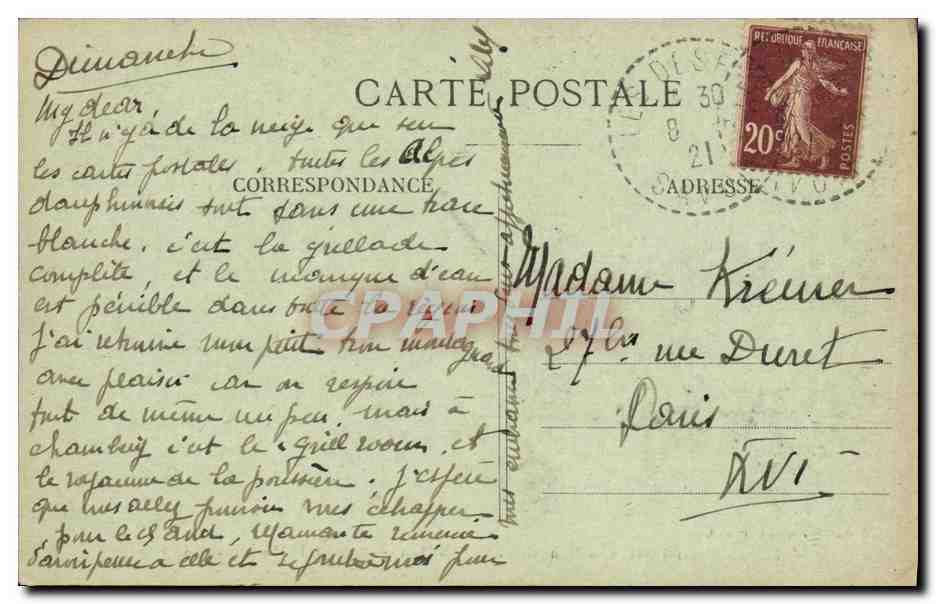 Dimanche
My dear,
Il n'y a de la neige que sur
les cartes postales, toutes les Alpes
dauphinoises sont dans une
blanche. c'est la grillade
complète, et le manque d'eau
est pénible dans toute la région
J'ai retrouvé mon petit trou montagnard
avec plaisir car on respire
tout de même un peu, mais à
Chambéry c'est le "grill room" et
le royaume de la poussière. J'espère
que vous allez pouvoir vous échapper
pour le remercie
d'avoir pensé a elle et se joint à moi pour
vous embrasser tous bien affectueusement
Lily
CARTE POSTALE
CORRESPONDANCE
ADRESSE
REPUBLIQUE FRANÇAISE
20c
POSTES
30
8
21
SAVOIE
Madame Krémer
27bis rue Duret
Paris
XVI
CPAPHIL